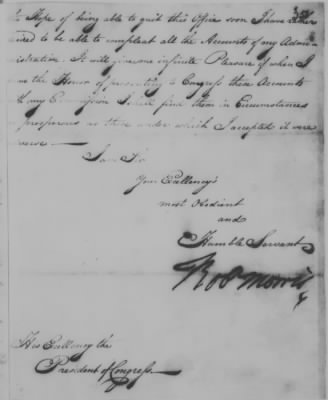 Hope of being able to quit this Office soon I have
to be able to compleat all the Accounts of my Admin
istration. It will give me infinite Pleasure if when I
the Honor of presenting to Congress these Accounts
my Commission I shall find them in Circumstances
prosperous as those under which I accepted it were
I am Sir
Your Excellency's
most Obedient
and
Humble Servant
Rob Morris
His Excellency the
President of Congress